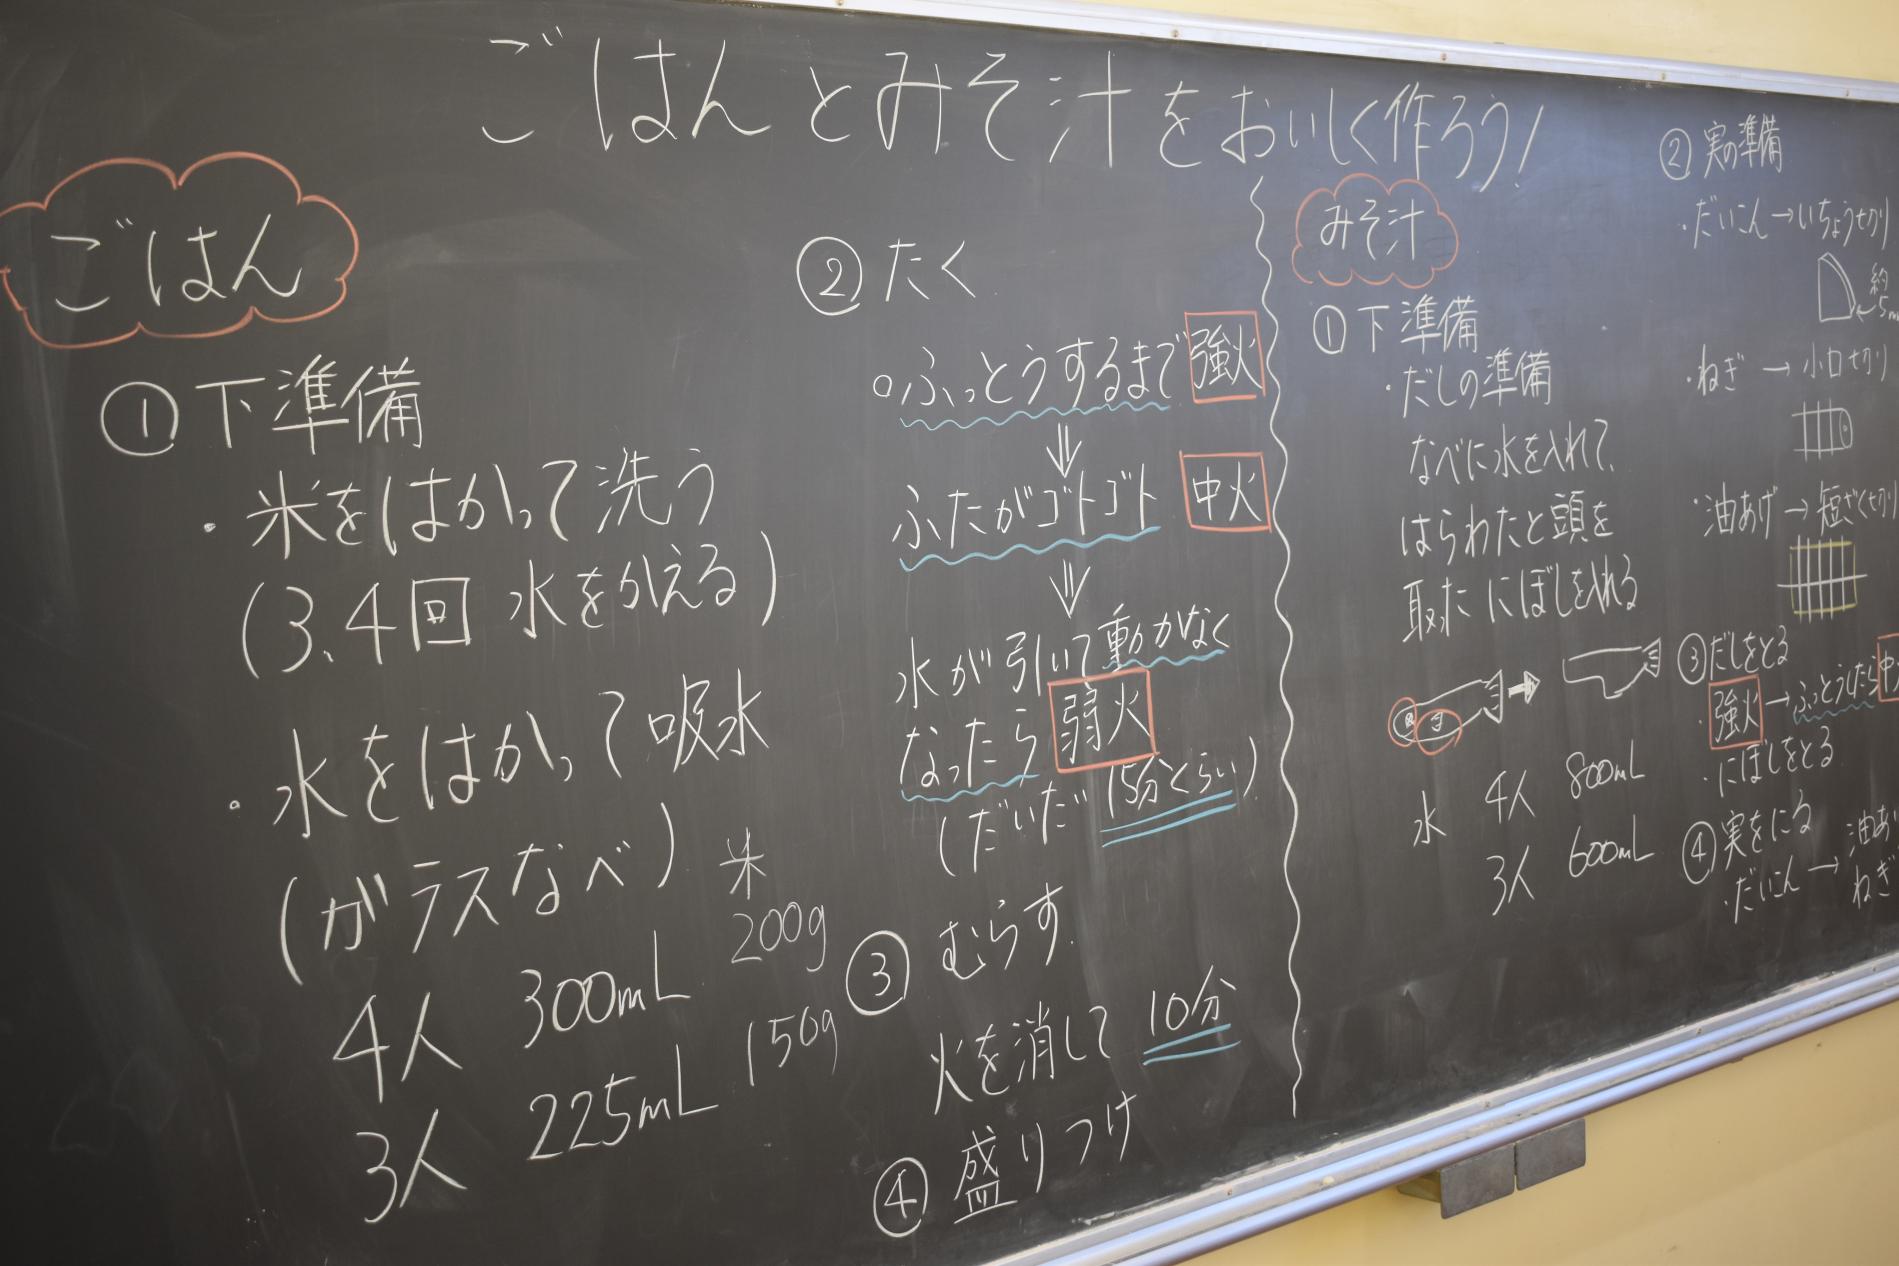 ごはんとみそ汁をおいしく作ろう!
ごはん
① 下準備
・米をはかって洗う
(3、4回 水をかえる)
・水をはかって吸水
(ガラスなべ)
米
4人 300mL 200g
3人 225mL 150g
② たく
○ふっとうするまで 強火
⇓
ふたがゴトゴト 中火
⇓
水が引いて動かなく
なったら 弱火
(だいだ 15分くらい)
③ むらす
火を消して 10分
④ 盛りつけ
みそ汁
① 下準備
・だしの準備
なべに水を入れて、
はらわたと頭を
取った にぼしを入れる
水 4人 800mL
3人 600mL
② 実の準備
・だいこん→いちょう切り
約
・ねぎ → 小口切り
・油あげ → 短ざく切り
③ だしをとる
・強火→ふっとうしたら
・にぼしをとる
④ 実をにる
・だいこん → 油あ
ねぎ